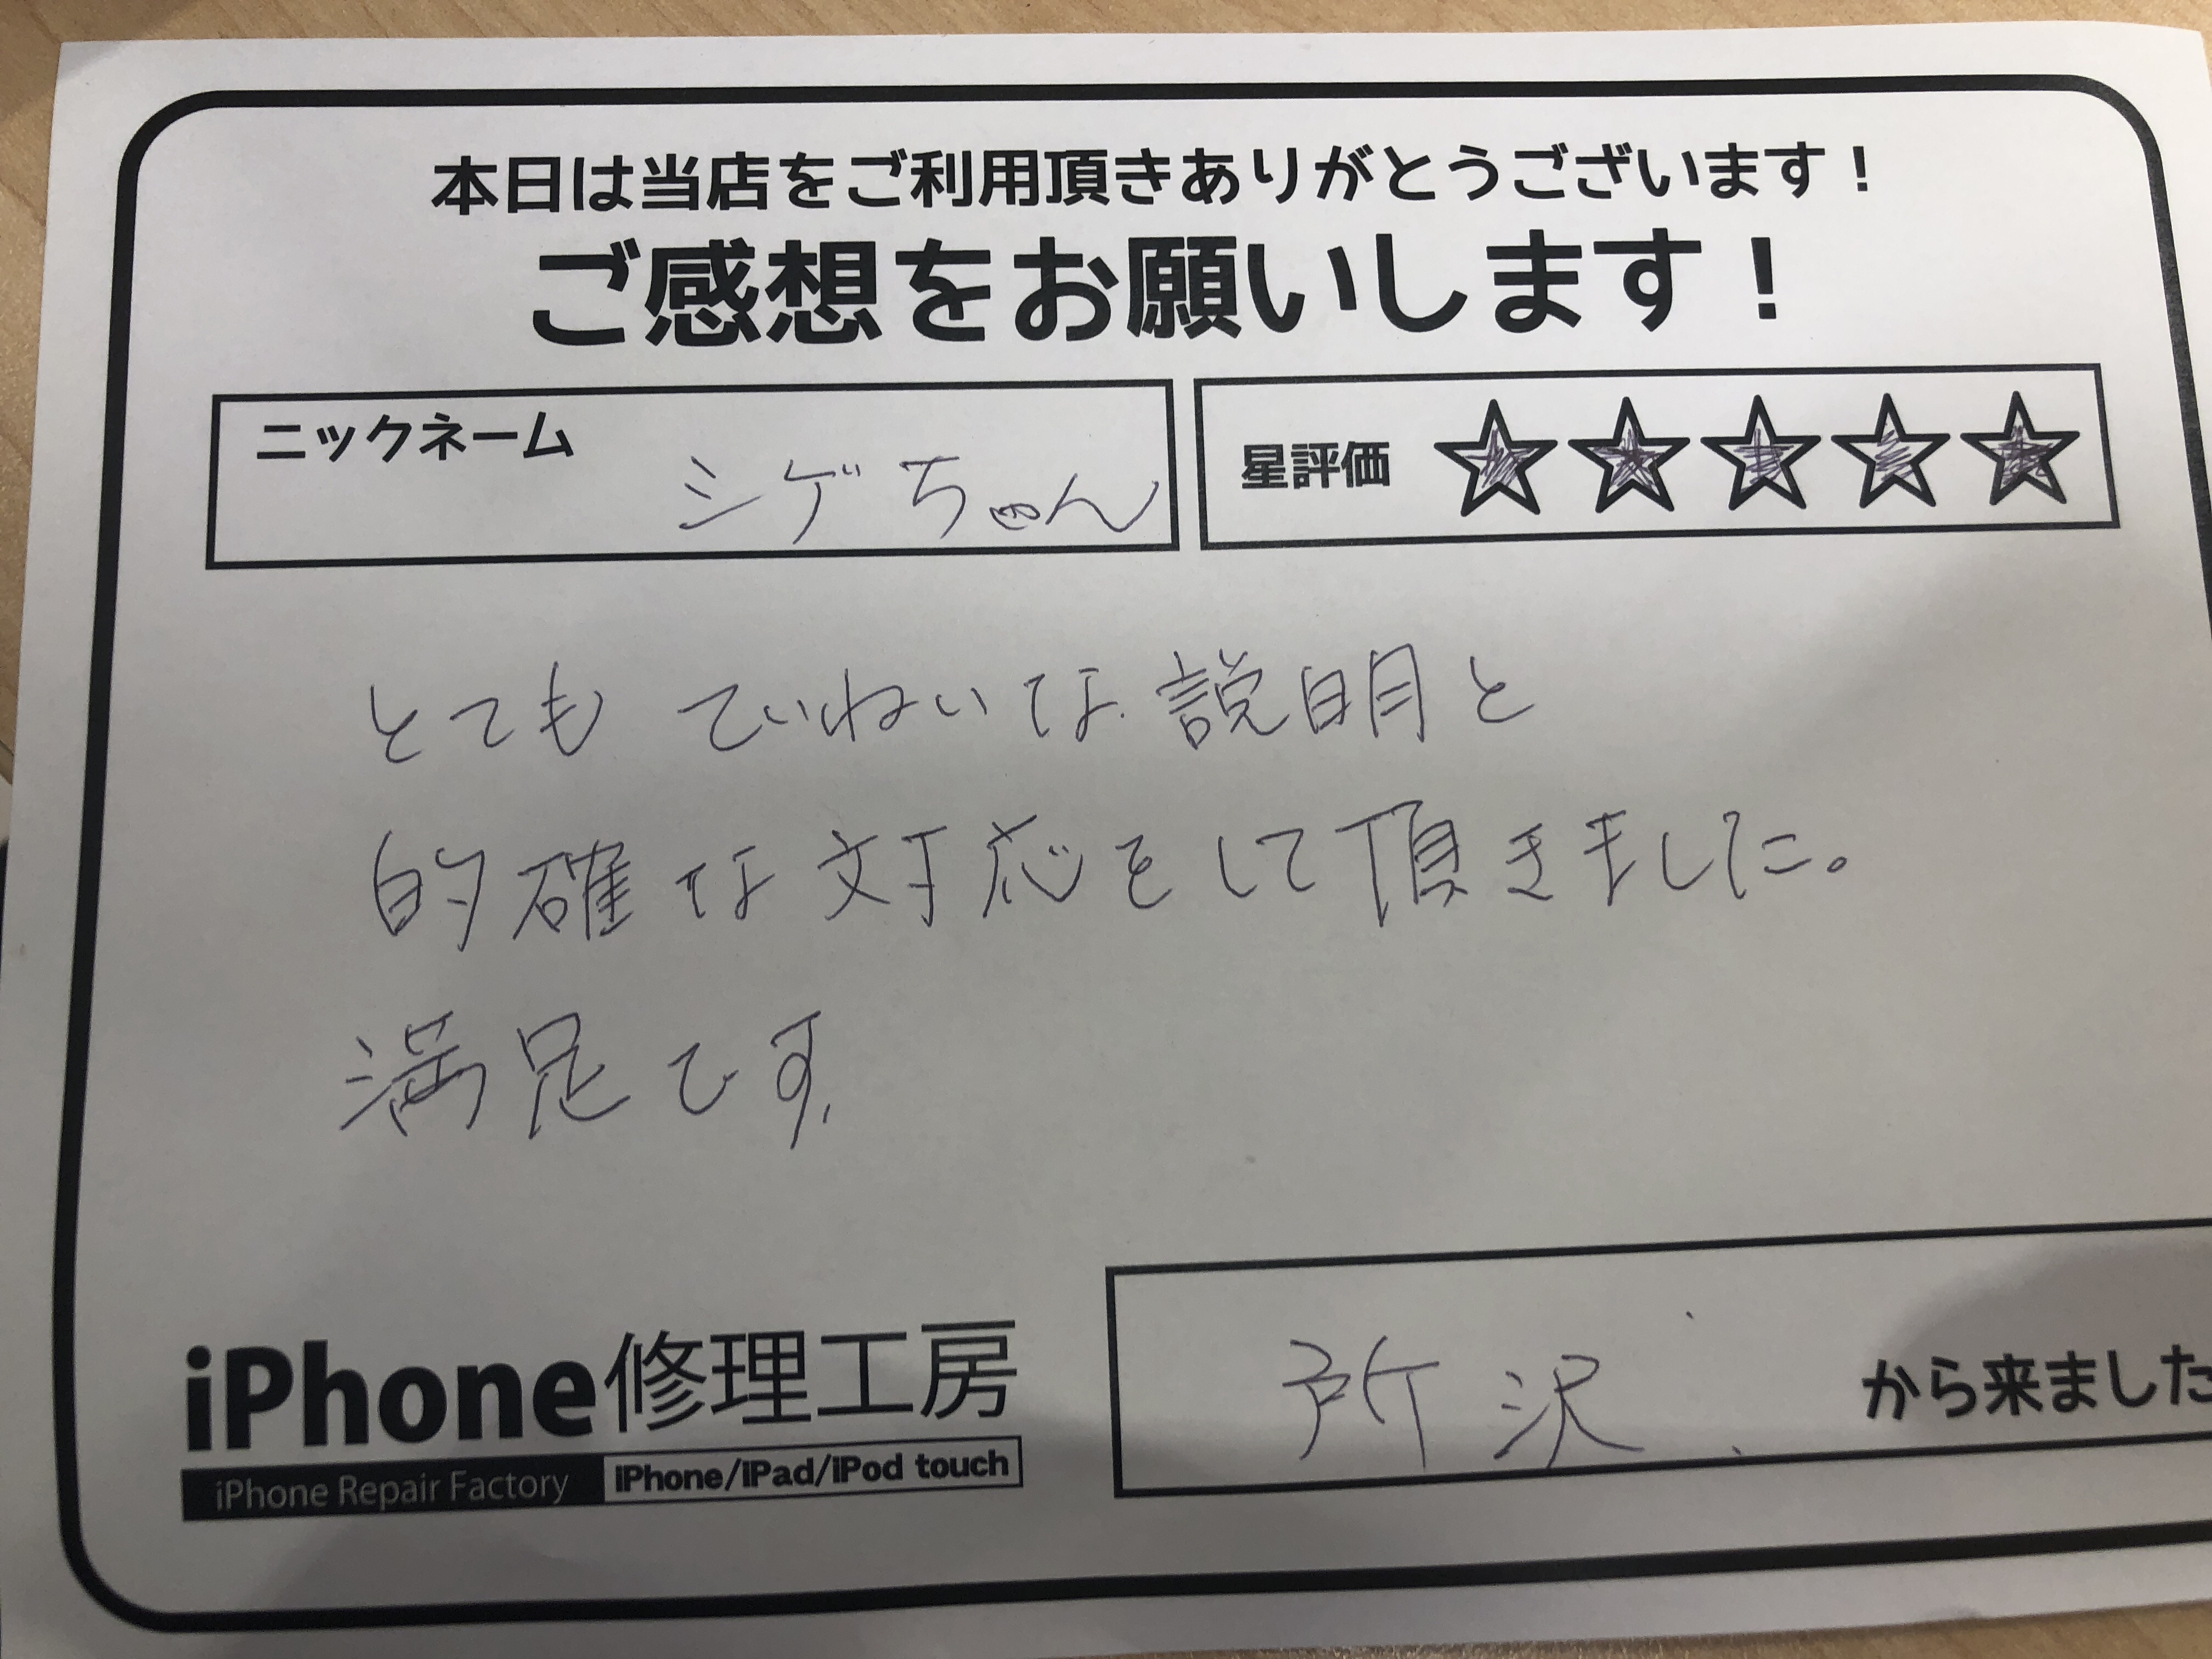 本日は当店をご利用頂きありがとうございます！
ご感想をお願いします！
ニックネーム シゲちゃん
星評価 ☆☆☆☆☆
とても ていねいな説明と
的確な対応をして頂きました。
満足です。
iPhone修理工房
iPhone Repair Factory iPhone/iPad/iPod touch
所沢 から来ました